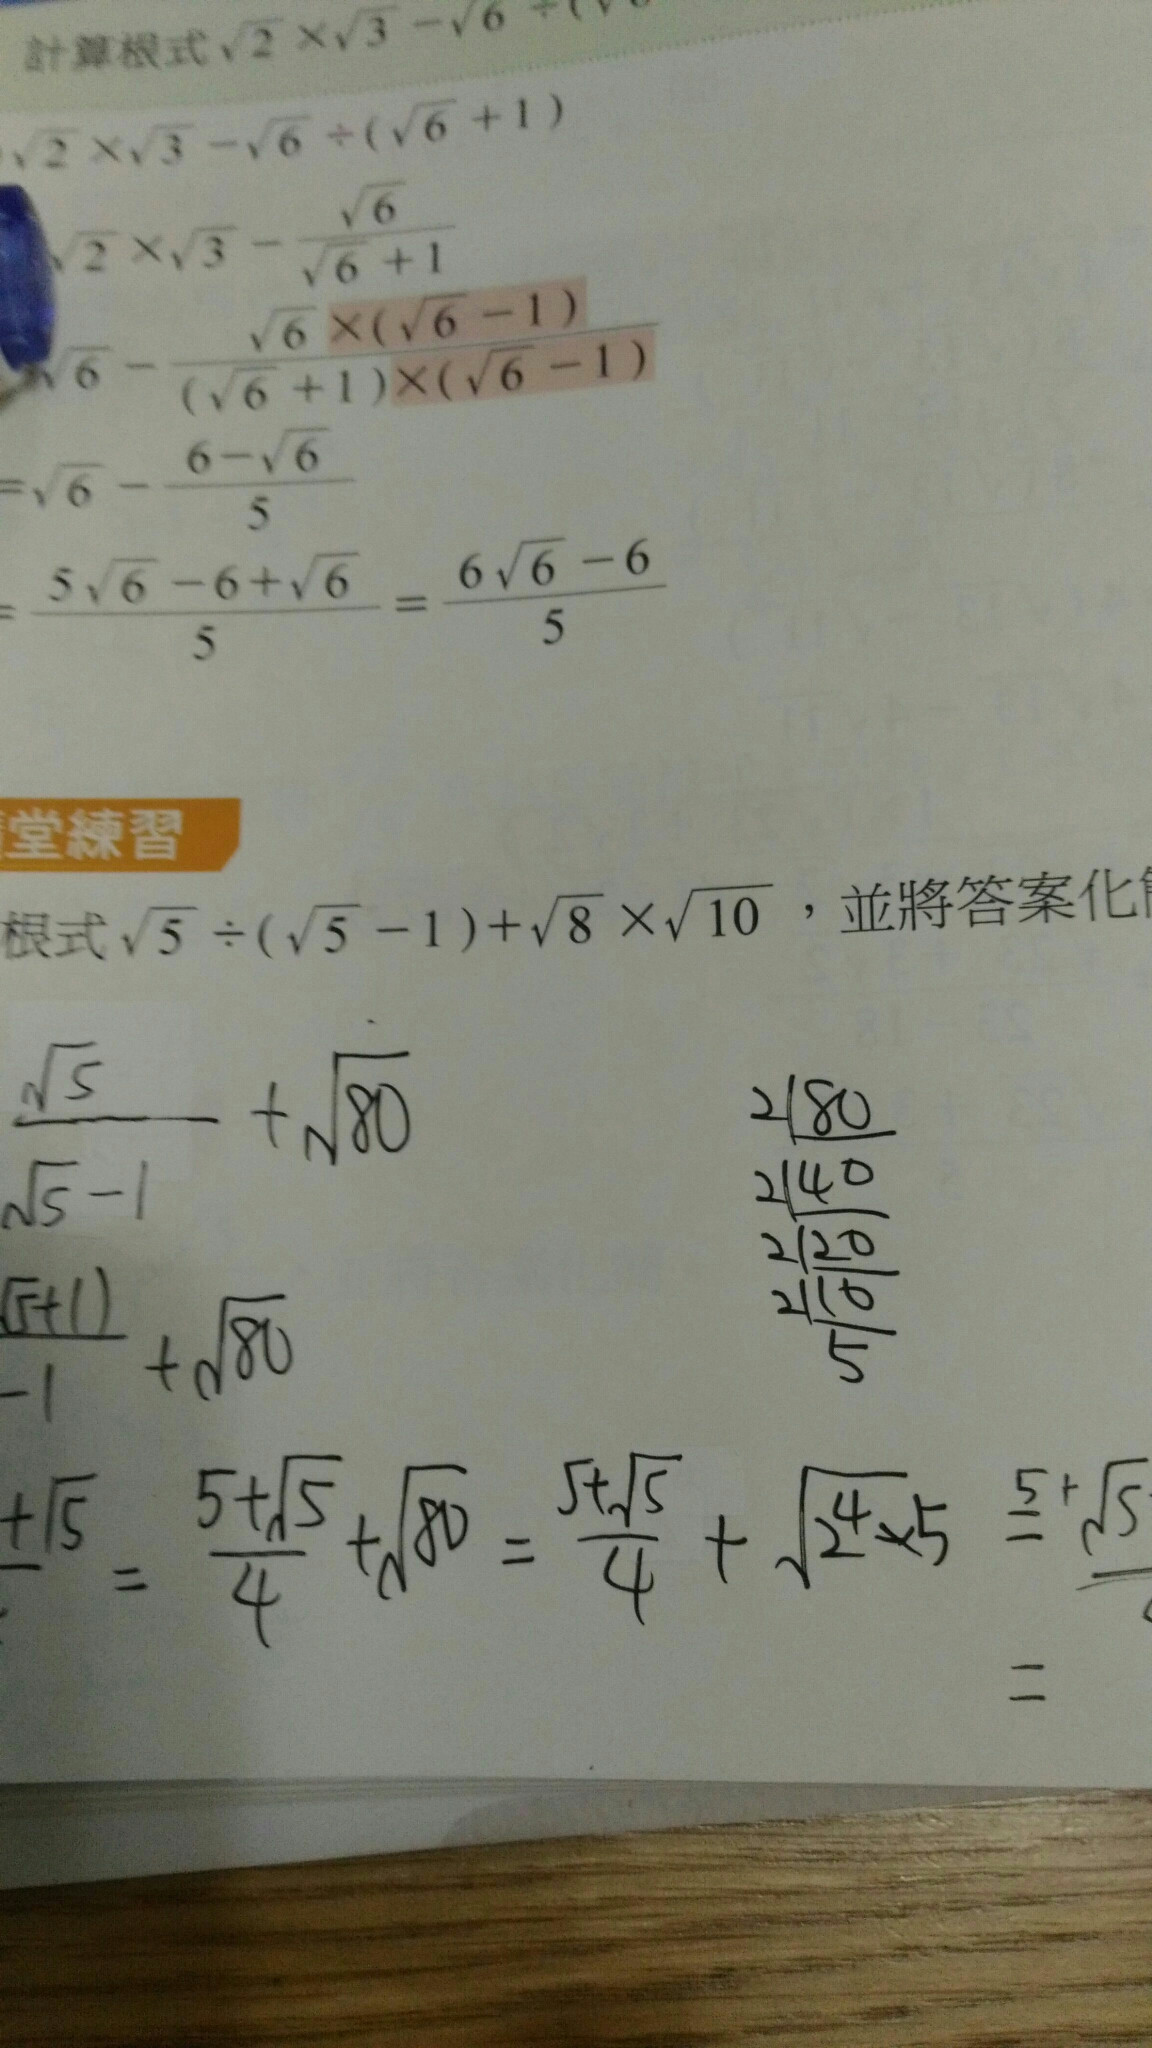 計算根式√2 ×√3 −√6 ÷(√6
√2 ×√3 −√6 ÷(√6 +1)
√2 ×√3 − √6/(√6 +1)
√6 − (√6 ×(√6 −1))/((√6 +1)×(√6 −1))
=√6 − (6−√6)/5
= (5√6 −6+√6)/5 = (6√6 −6)/5
堂練習
根式√5 ÷(√5 −1)+√8 ×√10 ，並將答案化
√5/(√5−1) + √80
2|80
2|40
2|20
2|10
5
√5+1)/−1 + √80
+√5 = (5+√5)/4 +√80 = (5+√5)/4 + √(2⁴×5) = 5+√5
=